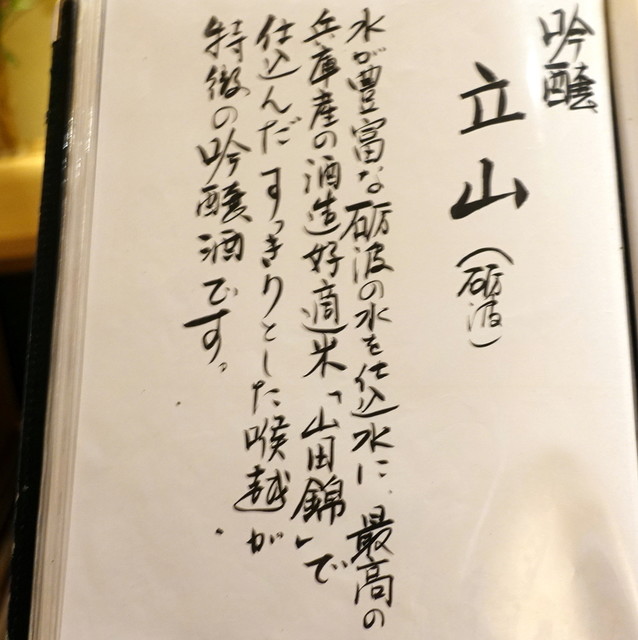 吟醸
立山(砺波)
水が豊富な砺波の水を仕込水に、最高の
兵庫産の酒造好適米「山田錦」で
仕込んだすっきりとした喉越が
特徴の吟醸酒です。